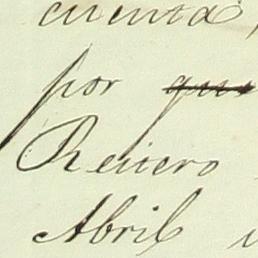 cuenta,
por que
Reitero
Abril